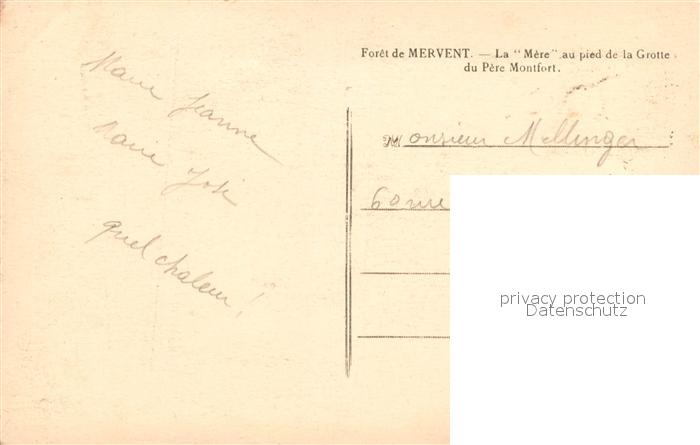 Forêt de MERVENT. — La "Mère" au pied de la Grotte
du Père Montfort.
Marie Jeanne
Marie José
quel chaleur !
Monsieur Mellinger
60 rue
privacy protection
Datenschutz